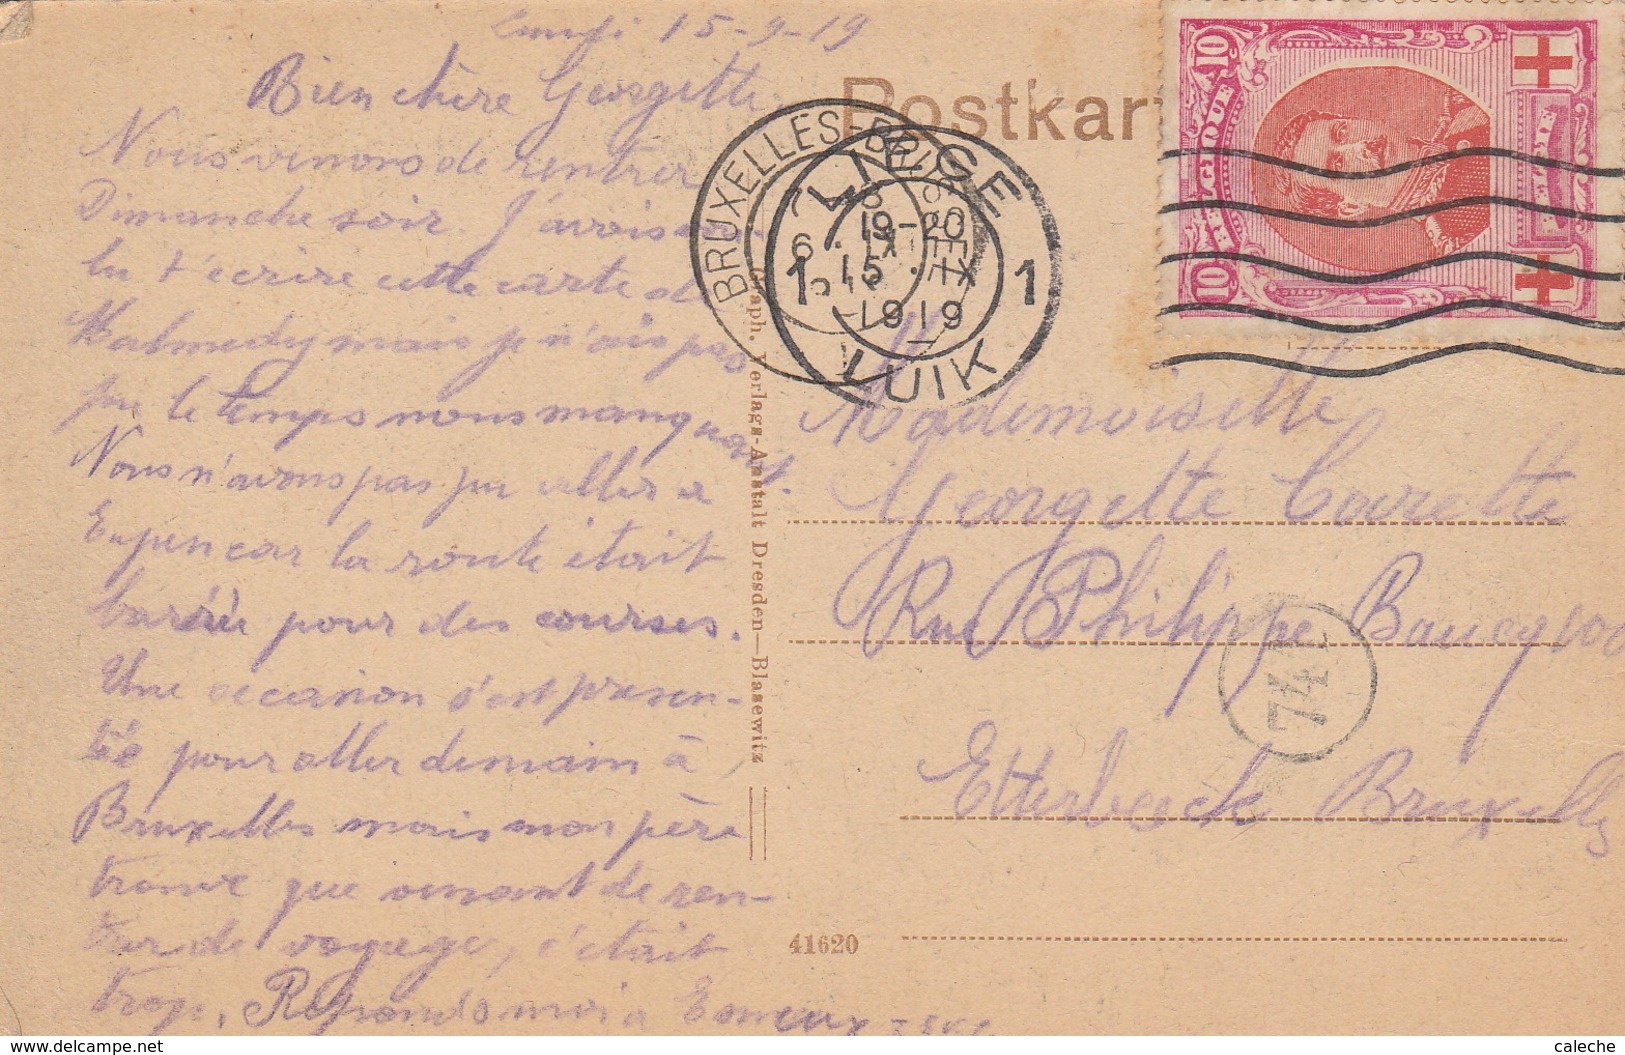 Lundi 15-9-19
Bien chère Georgette,
Nous venons de rentrer
Dimanche soir. J'avois vou-
lu t'écrire cette carte de
Malmedy mais je n'ais pas
pu le temps nous manquait.
Nous n'avons pas pu aller a
Eupen car la route était
barrée pour des courses.
Une occasion s'est presen-
tée pour aller demain à
Bruxelles mais mon père
trouve que venant de ren-
trer de voyage, c'était
trop. Reponds moi a Esneux
Postkar
10 10
BRUXELLES-BRUSSEL
LIEGE
1 19-20 1
15 IX
1919
LUIK
Graph. Verlags-Anstalt Dresden—Blasewitz
Mademoiselle
Georgette Carette
Rue Philippe Baucq 100
Etterbeeck Bruxelles
41620
delcampe.net
caleche